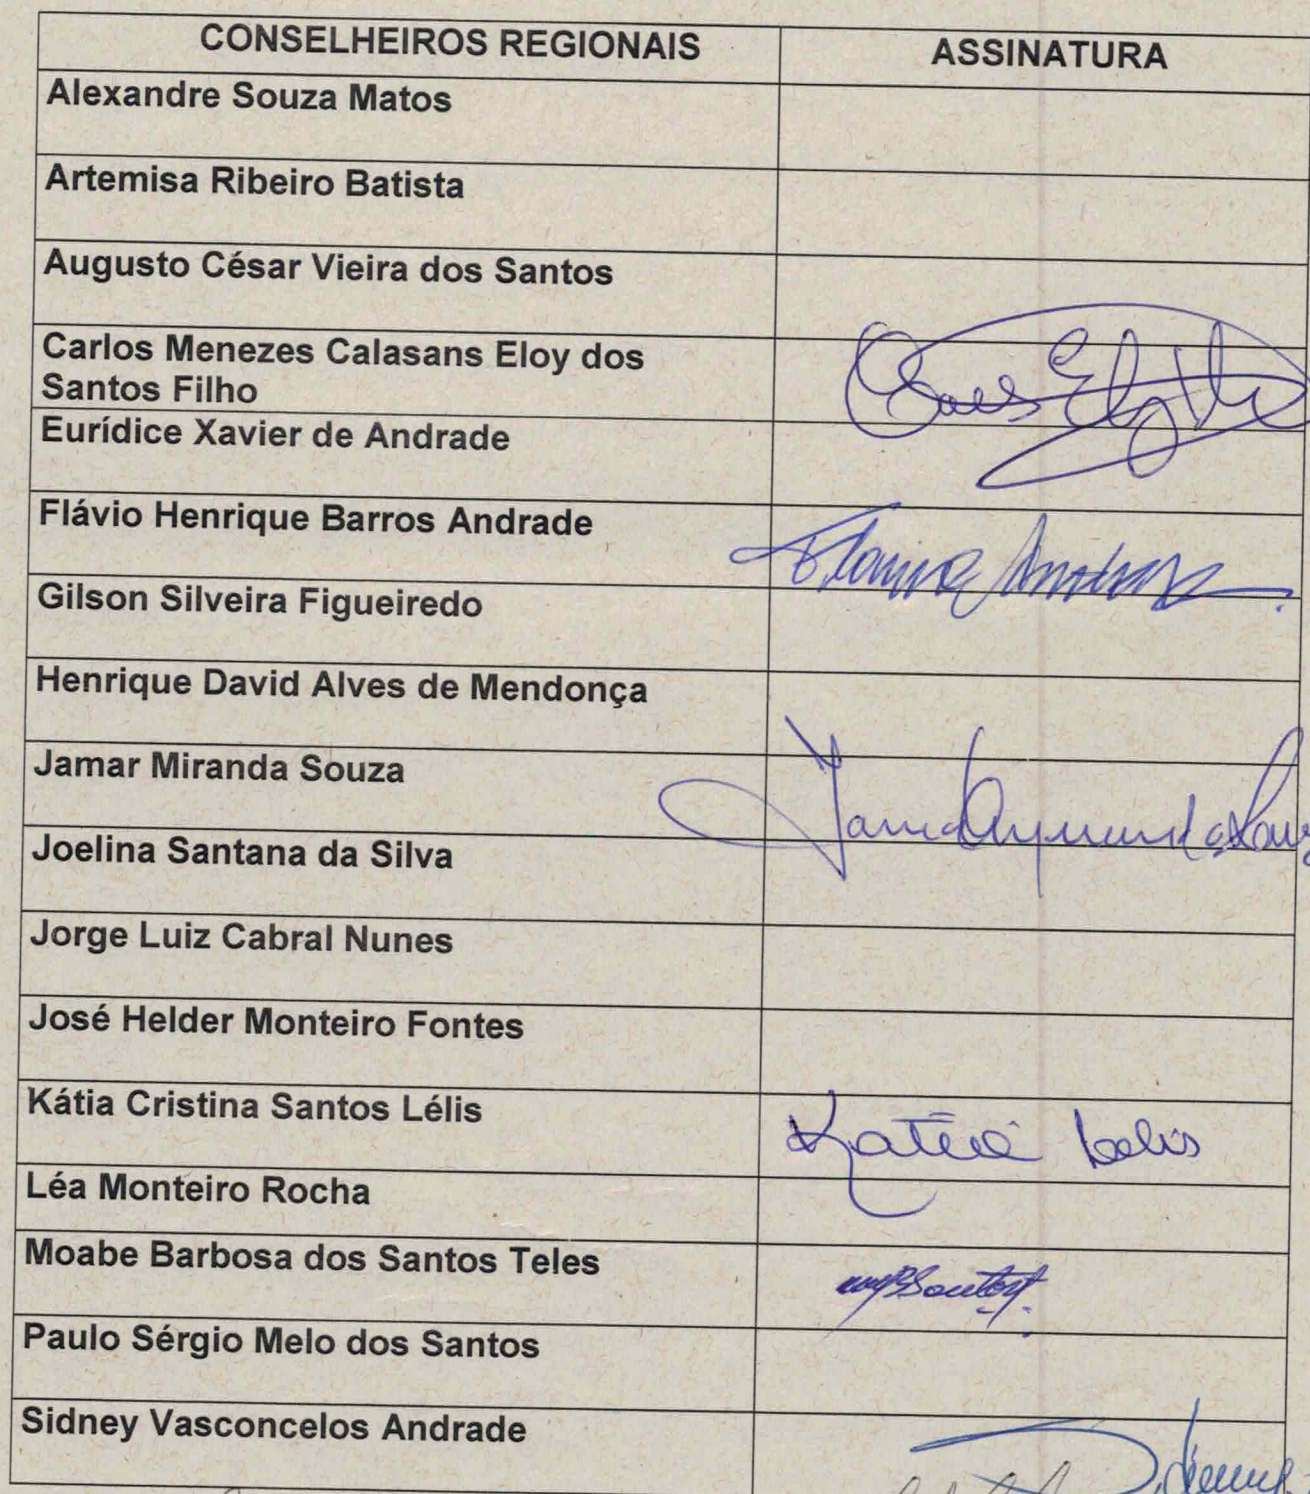 CONSELHEIROS REGIONAIS ASSINATURA
Alexandre Souza Matos
Artemisa Ribeiro Batista
Augusto César Vieira dos Santos
Carlos Menezes Calasans Eloy dos
Santos Filho
Eurídice Xavier de Andrade
Flávio Henrique Barros Andrade
Gilson Silveira Figueiredo
Henrique David Alves de Mendonça
Jamar Miranda Souza
Joelina Santana da Silva
Jorge Luiz Cabral Nunes
José Helder Monteiro Fontes
Kátia Cristina Santos Lélis Katia Lelis
Léa Monteiro Rocha
Moabe Barbosa dos Santos Teles
Paulo Sérgio Melo dos Santos
Sidney Vasconcelos Andrade